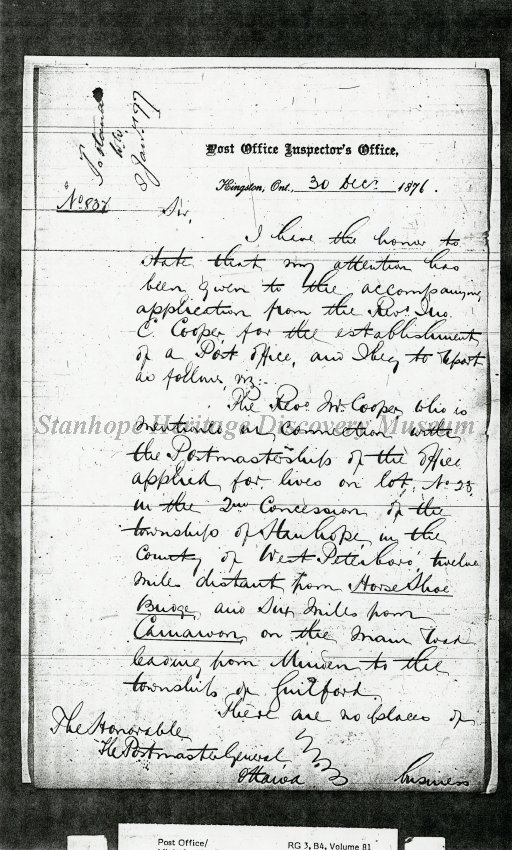 8 Jany 77
Post Office Inspector's Office,
Kingston, Ont., 30 Decr 1876.
No. 837
Sir,
I have the honor to
state that my attention has
been given to the accompanying
application from the Revd Jno.
C. Cooper for the establishment
of a Post Office, and I beg to report
as follows, viz:-
The Revd Mr. Cooper, who is
mentioned in connection with
the Postmastership of the office
applied for lives on lot, No 28
in the 2nd Concession of the
township of Stanhope, in the
County of West Peterboro, twelve
miles distant from Horse Shoe
Bridge, and Six miles from
Carnarvon, on the main road
leading from Minden to the
township of Guilford.
There are no places of
The Honorable
The Postmaster General,
Ottawa
business
Stanhope Heritage Discovery Museum
Post Office/
RG 3, B4, Volume 81